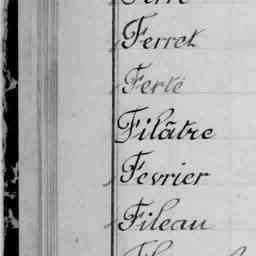 Ferret
Ferté
Filâtre
Fevrier
Fileau